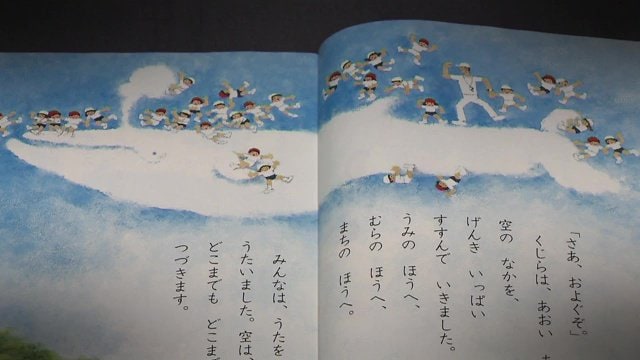 「さあ、およぐぞ」。
くじらは、あおい
空の なかを、
げんき いっぱい
すすんで いきました。
うみの ほうへ、
むらの ほうへ、
まちの ほうへ。
みんなは、うたを
うたいました。空は、
どこまでも どこま
つづきます。